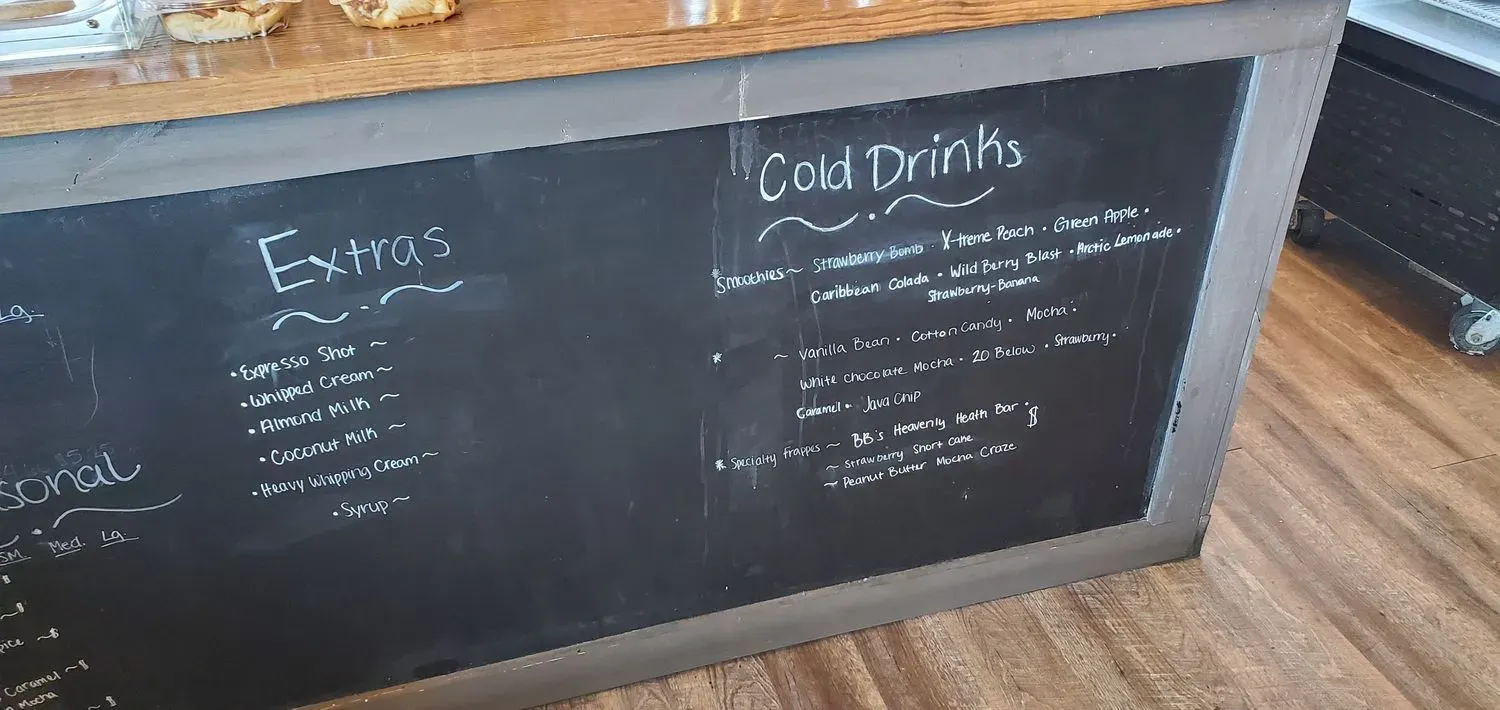 Lg.
sonal
SM. Med. Lg.
$
~$
pice ~$
Caramel ~$
Mocha
~ $
Extras
• Expresso Shot ~
• Whipped Cream ~
• Almond Milk ~
• Coconut Milk ~
• Heavy Whipping Cream ~
• Syrup ~
Cold Drinks
* Smoothies ~ Strawberry Bomb • X-treme Peach • Green Apple •
Caribbean Colada • Wild Berry Blast • Arctic Lemonade •
Strawberry-Banana
* ~ Vanilla Bean • Cotton Candy • Mocha •
White chocolate Mocha • 20 Below • Strawberry •
Caramel • Java Chip
* Specialty Frappes ~ BB's Heavenly Heath Bar • $
~ Strawberry Short cake
~ Peanut Butter Mocha Craze